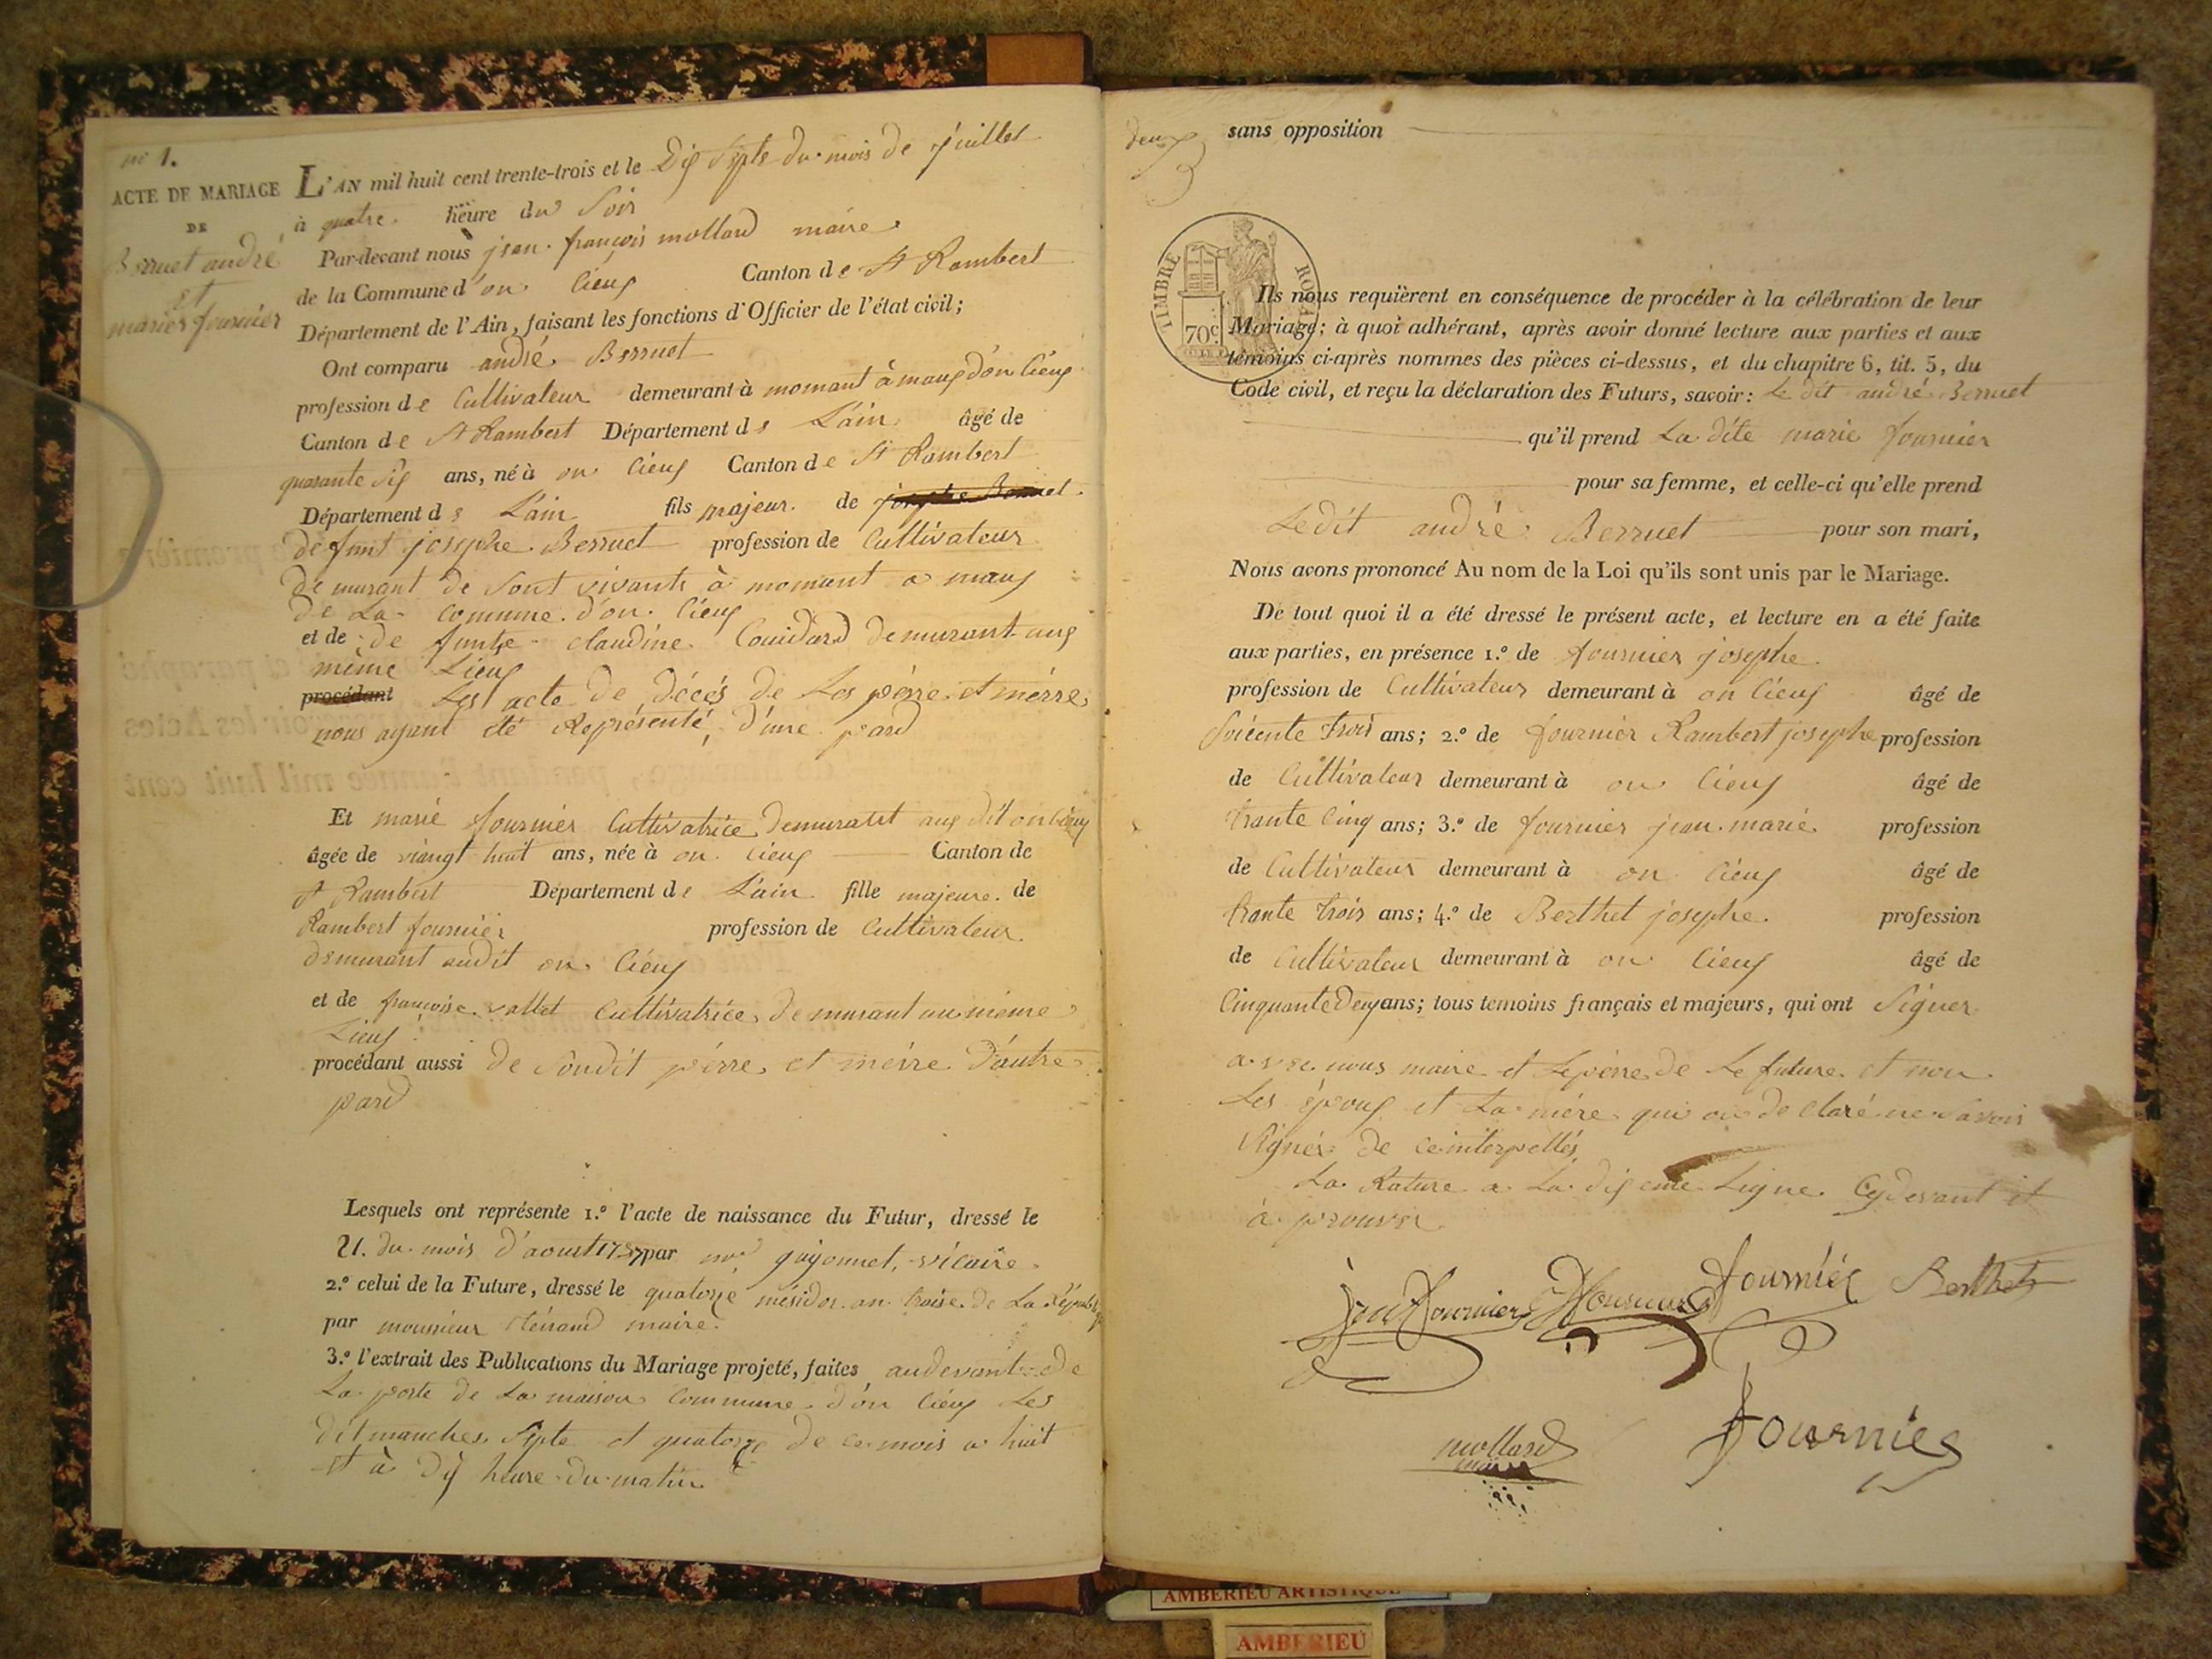 n° 1.
ACTE DE MARIAGE
DE
Berruet andré
et
marie fournier
L'AN mil huit cent trente-trois et le Dix Septe du mois de juillet
à quatre heure du Soir
Par-devant nous jean françois mollard maire
de la Commune d'on cieux Canton de St Rambert
Département de l'Ain, faisant les fonctions d'Officier de l'état civil;
Ont comparu andré Berruet
profession de Cultivateur demeurant à momant à maux d'on cieux
Canton de St Rambert Département de L'ain âgé de
quarante six ans, né à on cieux Canton de St Rambert
Département de L'ain fils majeur de josephe Berruet
defunt josephe Berruet profession de Cultivateur
demurant de Sont vivants à momant a maux
de La commune d'on cieux
et de de funte claudine Couidard demurant aux
même Lieux
procédant Les acte de décés de Les pérre et mérre
nous ayant été Représenté, d'une pard
Et marie fournier Cultivatrice demurant aux dit on cieux
âgée de viangt huit ans, née à on cieux Canton de
St Rambert Département de L'ain fille majeure de
Rambert fournier profession de Cultivateur
demurant audit on cieux
et de françoise vallet Cultivatrice demurant au même
Lieux
procédant aussi de Sondit pérre et mérre d'autre
pard
Lesquels ont représente 1.° l'acte de naissance du Futur, dressé le
21. du mois d'aoust 1787 par mr guyonnet, vicaire
2.° celui de la Future, dressé le quatorze mésidor an traise de La Républ
par monsieur maire
3.° l'extrait des Publications du Mariage projeté, faites audevant de
La porte de La maison Commune d'on cieux Les
ditmanches Septe et quatorze de ce mois a huit
et à dix heure du matin
deux
sans opposition
TIMBRE ROYAL
70c.
Ils nous requièrent en conséquence de procéder à la célébration de leur
Mariage; à quoi adhérant, après avoir donné lecture aux parties et aux
témoins ci-après nommes des pièces ci-dessus, et du chapitre 6, tit. 5, du
Code civil, et reçu la déclaration des Futurs, savoir: Le dit andré Berruet
qu'il prend La dite marie fournier
pour sa femme, et celle-ci qu'elle prend
Ledit andré Berruet pour son mari,
Nous avons prononcé Au nom de la Loi qu'ils sont unis par le Mariage.
De tout quoi il a été dressé le présent acte, et lecture en a été faite
aux parties, en présence 1.° de fournier josephe
profession de Cultivateur demeurant à on cieux âgé de
Soicente trois ans; 2.° de fournier Rambert josephe profession
de Cultivateur demeurant à on cieux âgé de
trante cinq ans; 3.° de fournier jean marie profession
de Cultivateur demeurant à on cieux âgé de
trante trois ans; 4.° de Berthet josephe profession
de Cultivateur demeurant à on cieux âgé de
Cinquante deux ans; tous temoins français et majeurs, qui ont Signer
avec nous maire et Le pérre de Le future et non
Les époux et La mére qui on déclaré ne Savoir
Signer de ce interpellés
La Rature a La dix eme Ligne Cydevant et
à prouver
fournier
fournier
fournier
Berthet
mollard
maire
fournier
AMBERIEU ARTISTIQUE
AMBERIEU